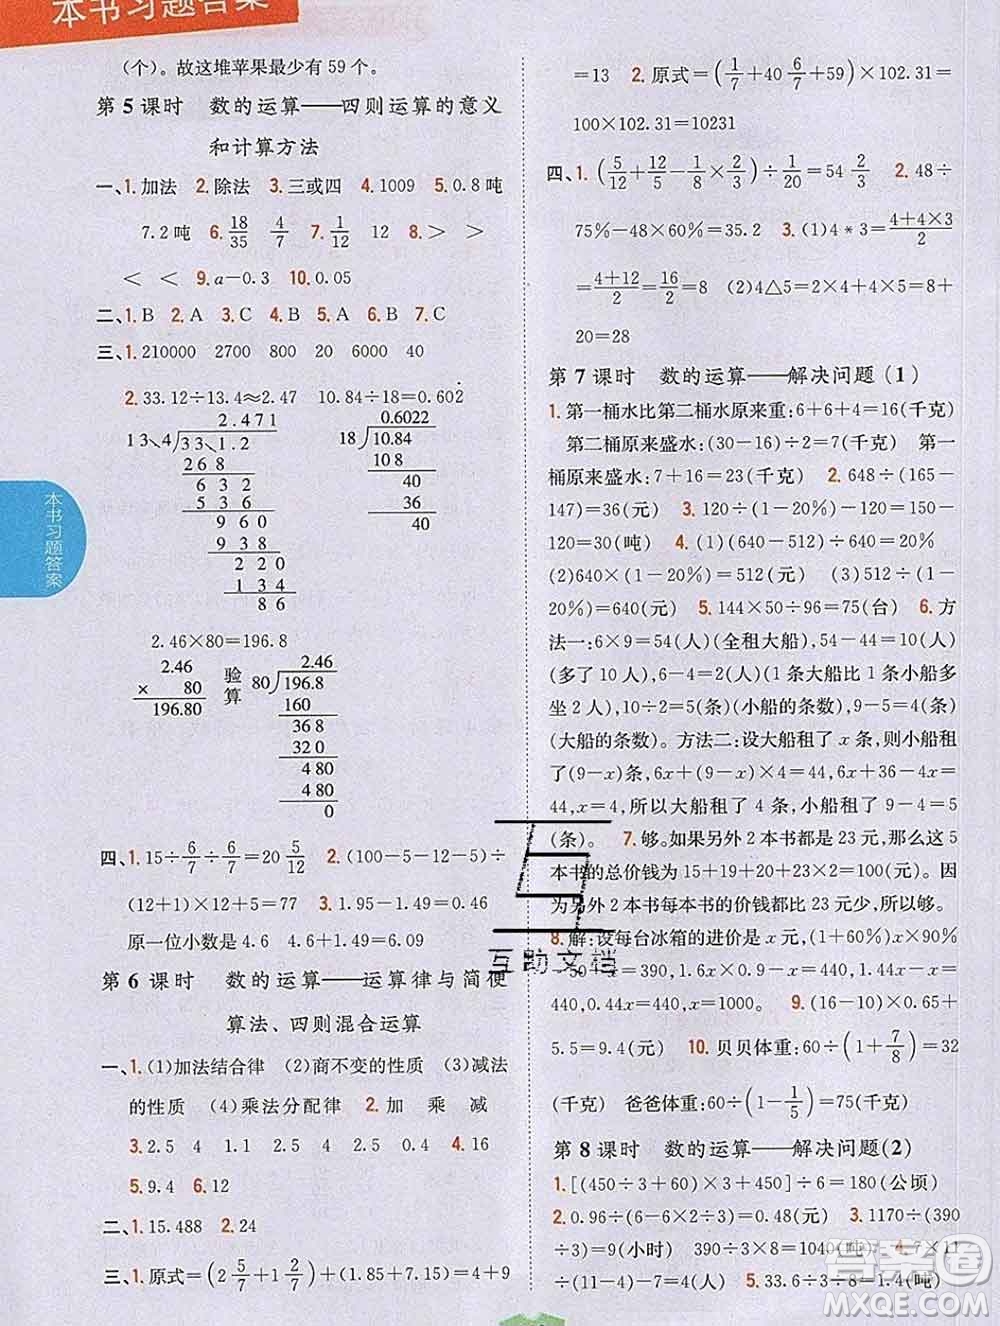 本书习题答案
（个）。故这堆苹果最少有 59 个。
第 5 课时 数的运算——四则运算的意义
和计算方法
一、1. 加法 2. 除法 3. 三或四 4. 1009 5. 0.8 吨
7.2 吨 6. 18/35 4/7 7. 1/12 12 8. > >
< < 9. a－0.3 10. 0.05
二、1. B 2. A 3. C 4. B 5. A 6. B 7. C
三、1. 210000 2700 800 20 6000 40
2. 33.12÷13.4≈2.47 10.84÷18=0.602̇
2.471
13.4 33 1.2
268
632
536
960
938
220
134
86
0.6022
18 10.84
108
40
36
40
2.46×80=196.8
2.46
× 80
196.80
验算
2.46
80 196.8
160
368
320
480
480
0
四、1. 15÷6/7÷6/7=20 5/12 2. (100－5－12－5)÷
(12+1)×12－5=77 3. 1.95－1.49=4.6
原一位小数是 4.6 4.6+1.49=6.09
第 6 课时 数的运算——运算律与简便
算法、四则混合运算
一、1. (1)加法结合律 (2)商不变的性质 (3)减法
的性质 (4)乘法分配律 2. 加 乘 减
3. 2.5 4 1.1 2.5 4 4. 16
5. 9.4 6. 12
二、1. 15.488 2. 24
三、1. 原式=(2 5/7+1 2/7)+(1.85+7.15)=4+9
=13 2. 原式=(1/7+40 6/7+59)×102.31=
100×102.31=10231
四、1. (5/12+5/12－1/8×2/3)÷1/20=54 2/3 2. 48÷
75%－48×60%=35.2 3. (1)4*3=(4+4×3)/2
=(4+12)/2=16/2=8 (2)4△5=2×4+4×5=8+
20=28
第 7 课时 数的运算——解决问题(1)
1. 第一桶水比第二桶水原来重:6+6+4=16(千克)
第二桶原来盛水:(30－16)÷2=7(千克) 第一
桶原来盛水:7+16=23(千克) 2. 648÷(165－
147)=36(元) 3. 120÷(1－20%)－120=150－
120=30(吨) 4. (1)(640－512)÷640=20%
(2)640×(1－20%)=512(元) (3)512÷(1－
20%)=640(元) 5. 144×50%+3=75(台) 6. 方
法一:6×9=54(人)(全租大船),54－44=10(人)
(多了 10 人),6－4=2(人)(1 条大船比 1 条小船多
坐 2 人),10÷2=5(条)(小船的条数),9－5=4(条)
(大船的条数)。方法二:设大船租了 x 条,小船租
了(9－x)条,6x+(9－x)×4=44,6x+36－4x=
44,x=4,所以大船租了 4 条,小船租了 9－4=5
(条)。 7. 够。如果另外 2 本书都是 23 元,那么这 5
本书的总价钱为 15+19+20+23×2=100(元)。因
为另外 2 本书每本书的价钱都比 23 元少,所以够。
8. 解:设每台冰箱的进价是 x 元,(1+60%)x×90%
－150－50=x+390,1.44x－200=x+390,1.44x－
x=440,0.44x=440,x=1000 9. (16－10)×0.65+
5.5=9.4(元) 10. 贝贝体重:60÷(1+7/8)=32
(千克) 爸爸体重:60÷(1－1/5)=75(千克)
第 8 课时 数的运算——解决问题(2)
1. [(450÷3+60)×3+450]÷6=180(公顷)
2. 0.96÷(6－6×2÷3)=0.48(元) 3. 1170÷(390
÷3)=9(小时) 390÷3×8=1040(吨) 4. 7×11
÷(11－4)－7=4(人) 5. 33.6÷3÷8=1.4(吨)
本书习题答案
互助文档
答案圈
MXQE.COM